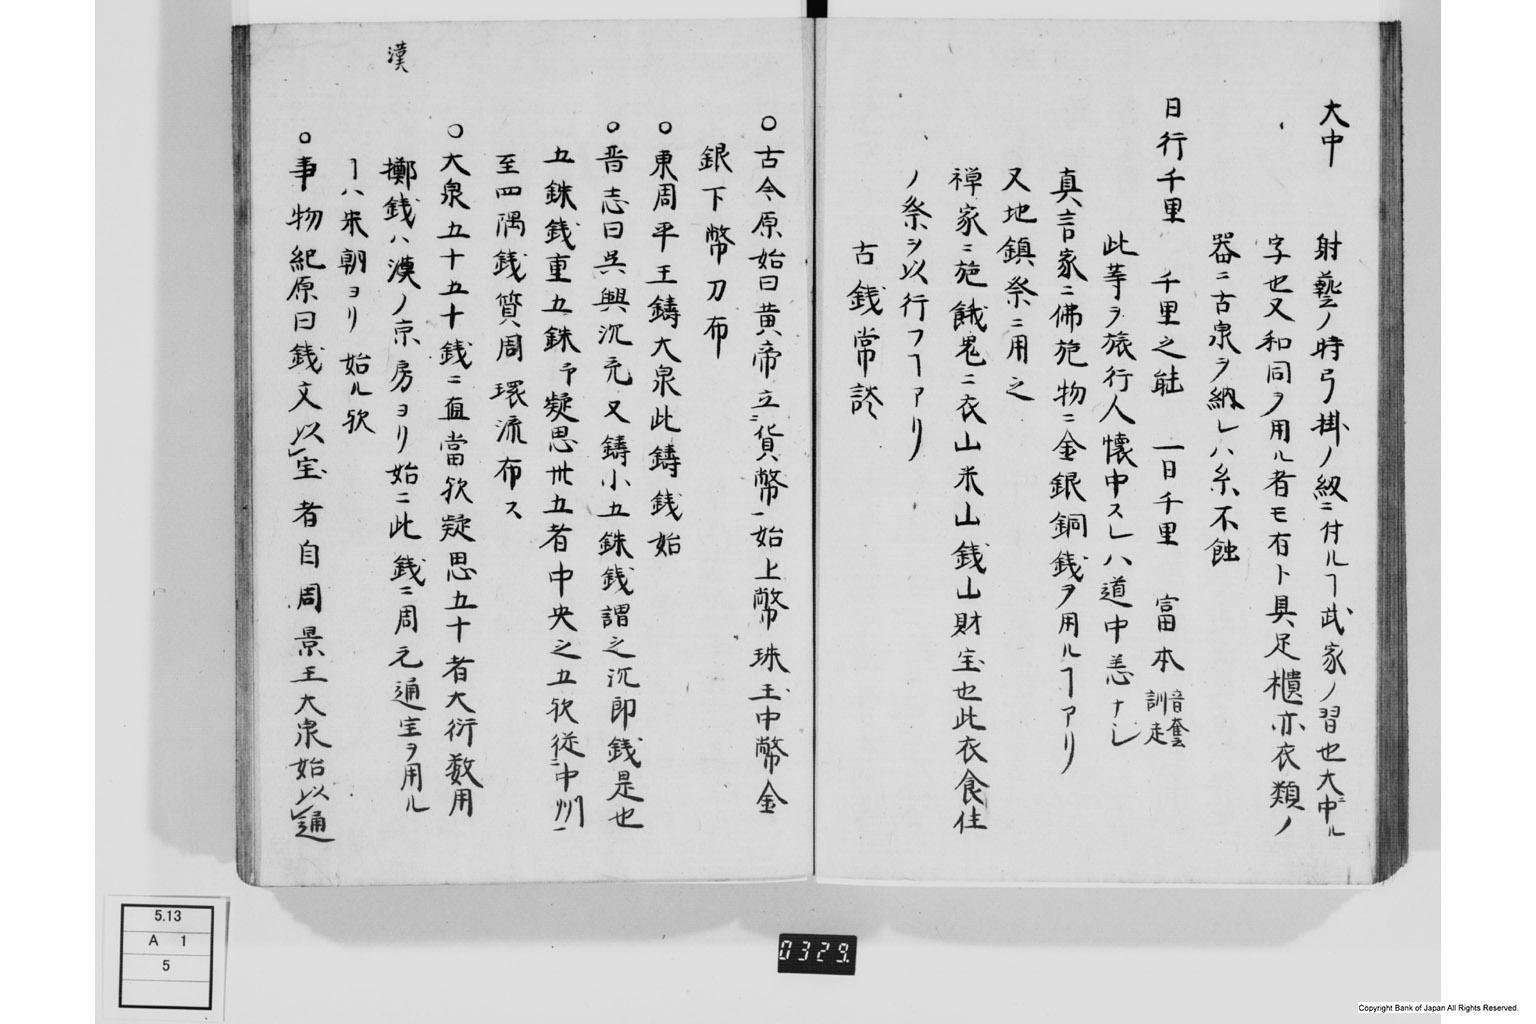 大中　射藝ノ時弓掛ノ紐ニ付ルヿ武家ノ習也大中ニル
字也又和同ヲ用ル者モ有ト具足櫃亦衣類ノ
器ニ古泉ヲ納レハ糸不蝕
日行千里　千里之能　一日千里　富本 音奎 訓走
此等ヲ旅行人懐中スレハ道中恙ナシ
真言家ニ佛施物ニ金銀銅銭ヲ用ルヿアリ
又地鎮祭ニ用之
禅家ニ施餓鬼ニ衣山米山銭山財宝也此衣食住
ノ祭ヲ以行フヿアリ
古銭常談
○古今原始曰黄帝立ニ貨幣一始上幣珠玉中幣金
銀下幣刀布
○東周平王鑄大泉此鑄銭始
○晋志曰呉興沉充又鑄小五銖銭謂之沉郎銭是也
五銖銭重五銖予疑思卅五者中央之五欤従ニ中州一
至四隅銭質周環流布ス
○大泉五十五十銭ニ直當欤疑思五十者大衍数用
漢
擲銭ハ漢ノ京房ヨリ始ニ此銭ニ周元通宝ヲ用ル
ヿハ宋朝ヨリ始ル欤
○事物紀原曰銭文以宝者自周景王大泉始以通
5.13
A 1
5
0329.
Copyright Bank of Japan All Rights Reserved.